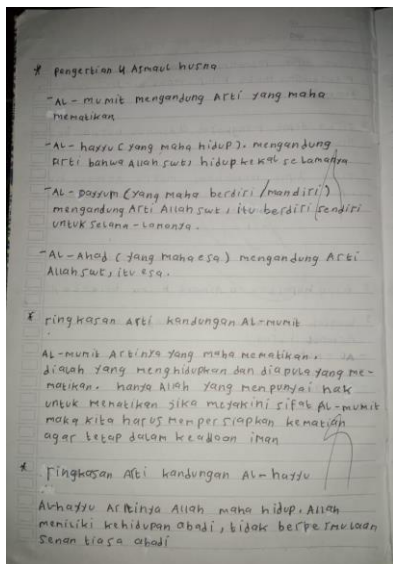 * Pengertian 4 Asmaul husna
- AL - mumit mengandung Arti yang maha
mematikan
- AL - hayyu (yang maha hidup). mengandung
Arti bahwa Allah swt, hidup kekal selamanya
- AL - Qayyum (yang maha berdiri / mandiri)
mengandung Arti Allah swt, itu berdiri sendiri
untuk selama - lamanya.
- AL - Ahad (yang maha esa) mengandung Arti
Allah swt, itu esa.
* ringkasan Arti kandungan AL-mumit
AL-mumit Artinya yang maha mematikan.
dialah yang menghidupkan dan diapula yang me-
matikan. hanya Allah yang mempunyai hak
untuk mematikan jika meyakini sifat AL-mumit
maka kita harus mempersiapkan kematian
agar tetap dalam keadaan iman
* ringkasan Arti kandungan AL-hayyu
ALhayyu Artinya Allah maha hidup. Allah
memiliki kehidupan abadi, tidak berpermulaan
senantiasa abadi